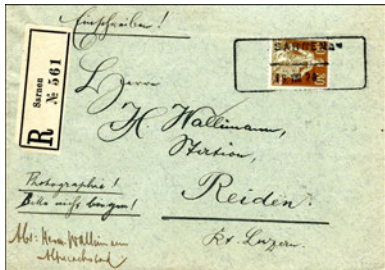 Einschreiben!
R
Sarnen
№ 561
30
Herrn
H. Wallimann,
Station,
Reiden.
Kt. Luzern.
Photographie!
Bitte nicht biegen!
Abs: Herm. Wallimann